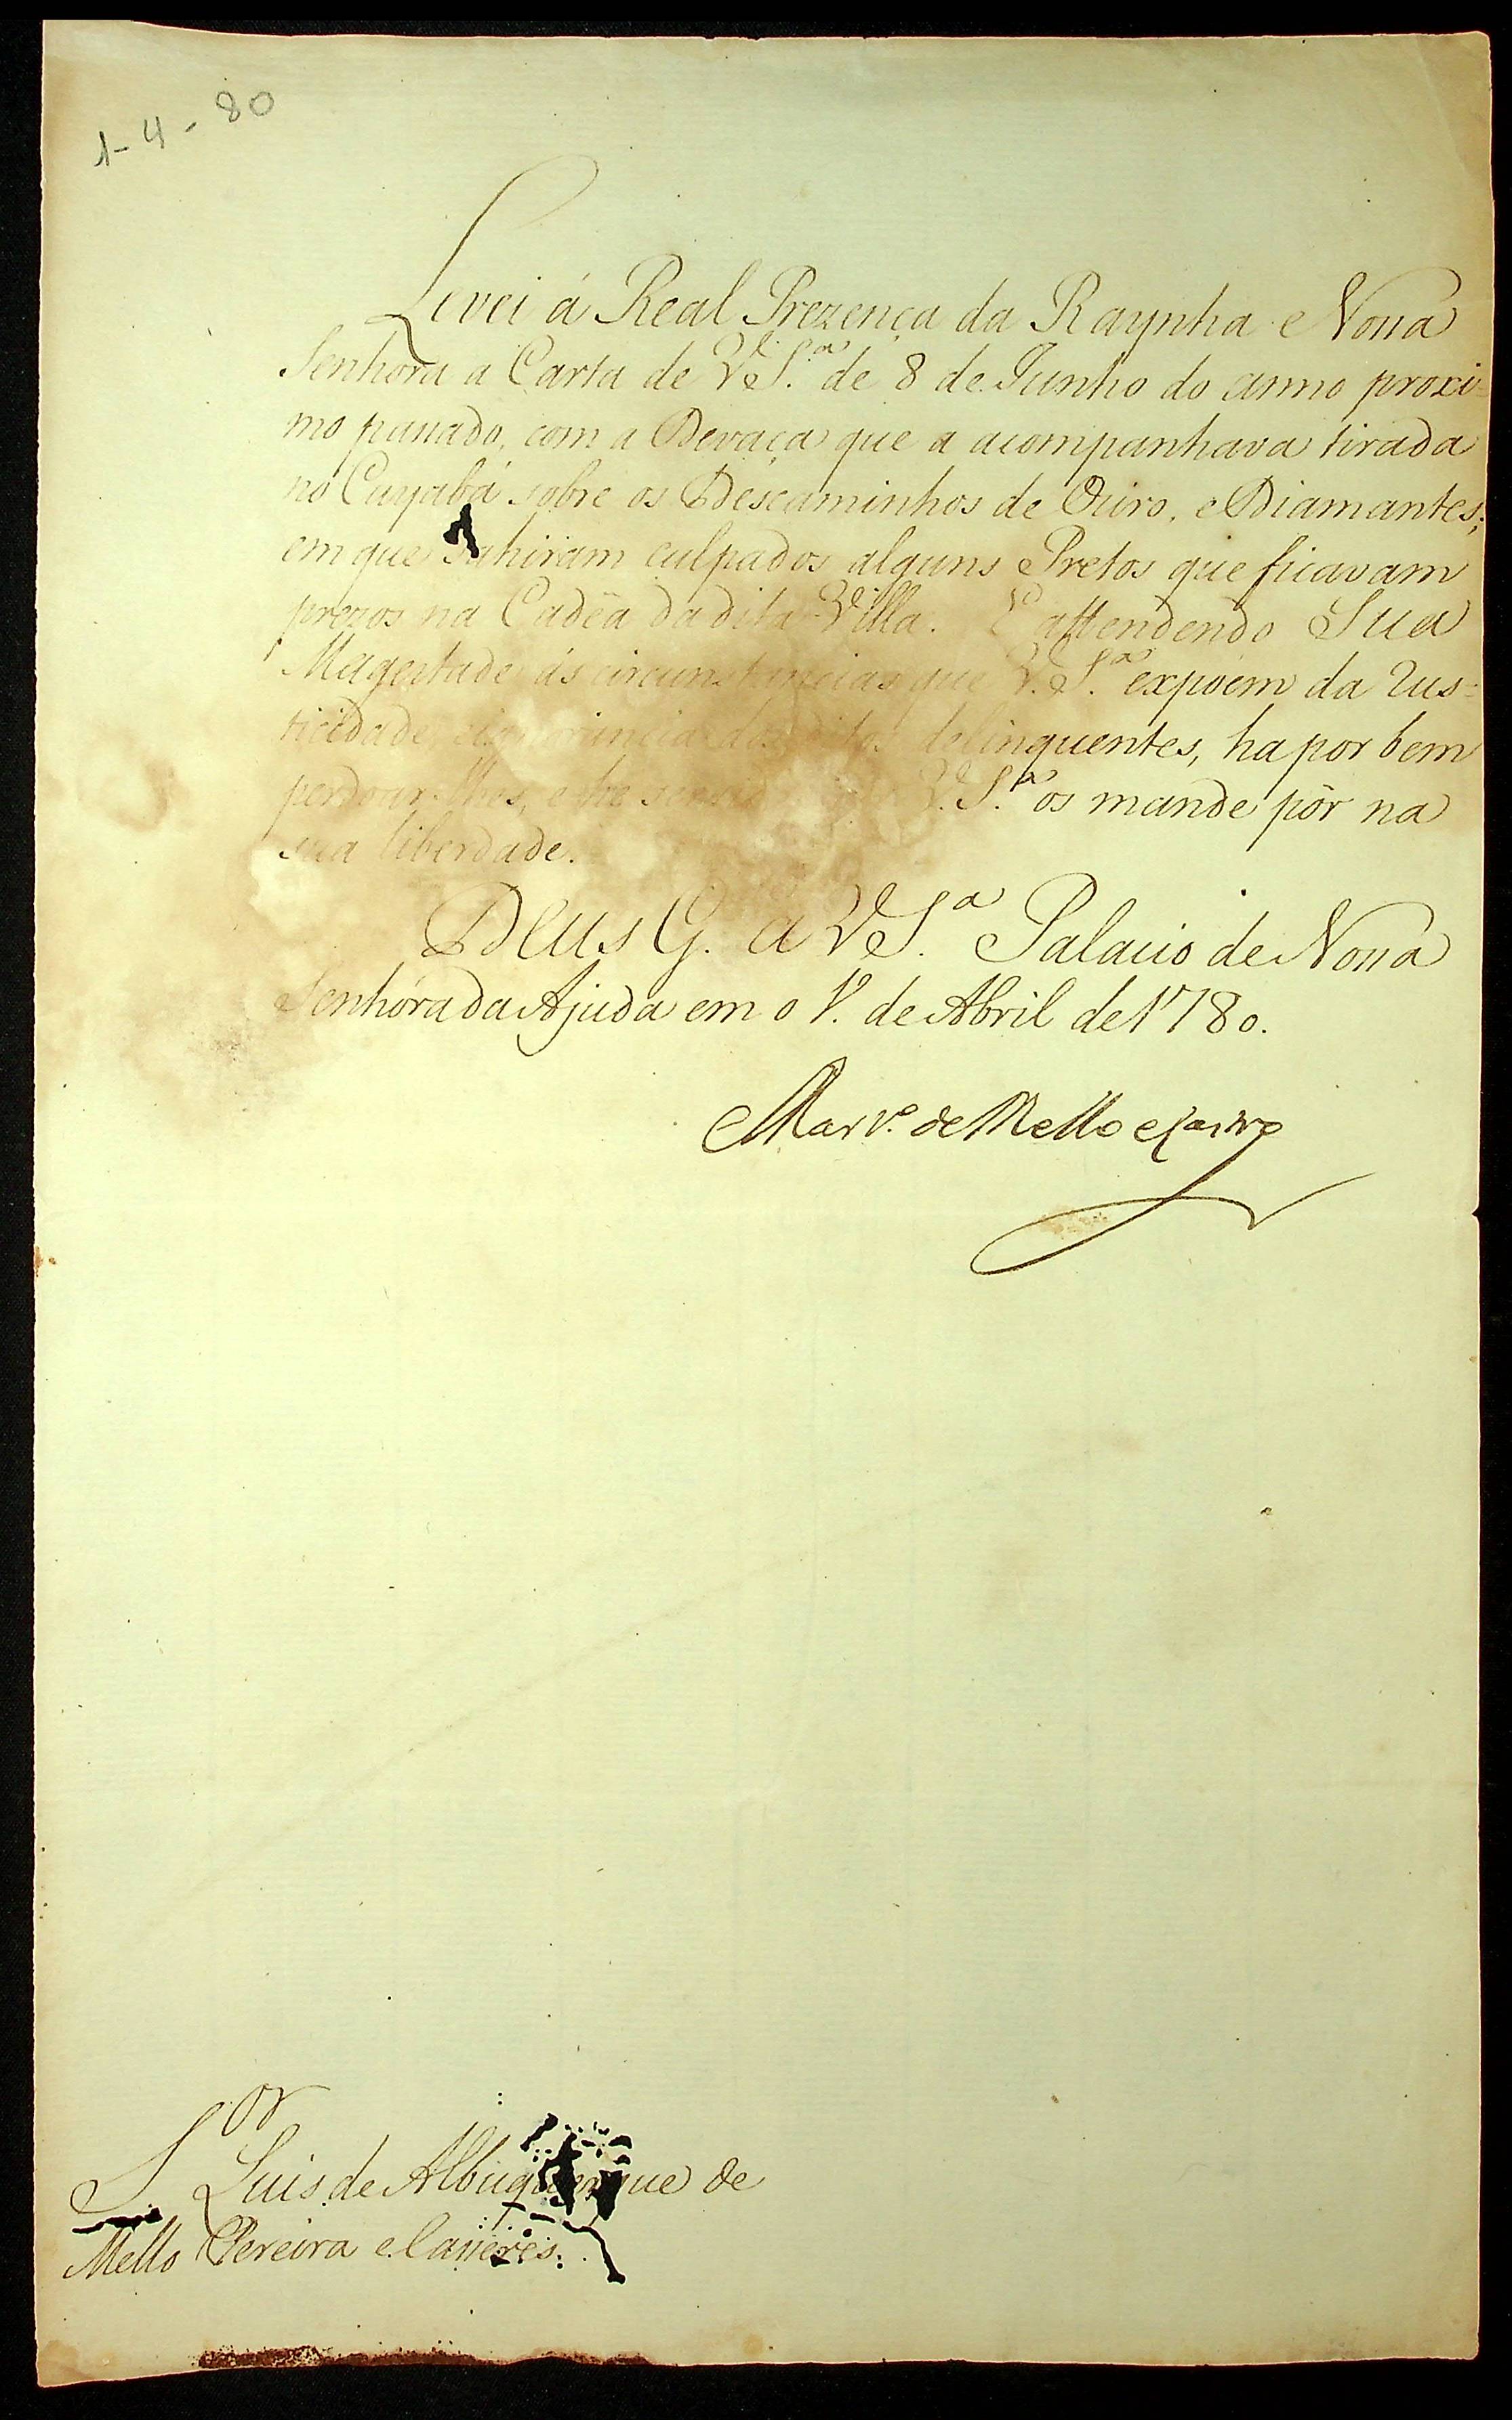 1-4-80
Levei á Real Prezença da Raynha e Nossa
Senhora a Carta de V. S.ª de 8 de Junho do anno proxi=
mo passado, com a Devaça que a acompanhava tirada
no Cuyabá sobre os Descaminhos de Ouro, e Diamantes;
em que sahiram culpados alguns Pretos que ficavam
prezos na Cadêa da dita Villa. E attendendo Sua
Magestade ás circunstancias que V. S.ª expoem da rus=
ticidade, e ignorancia dos ditos delinquentes, ha por bem
perdoar-lhes, e he servida que V. S.ª os mande pôr na
sua liberdade.
Deus G. a V. S.ª Palacio de Nossa
Senhóra da Ajuda em o 1.º de Abril de 1780.
Mar.º de Mello e Castro
S.or Luis de Albuquerque de
Mello Pereira e Caseres.